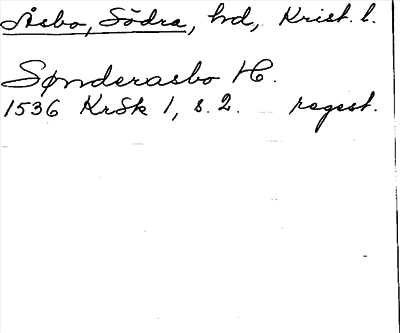 Åsbo, Södra, hd, Krist. l.
Sønderasbo H.
1536 KrSk 1, s. 2. regest.